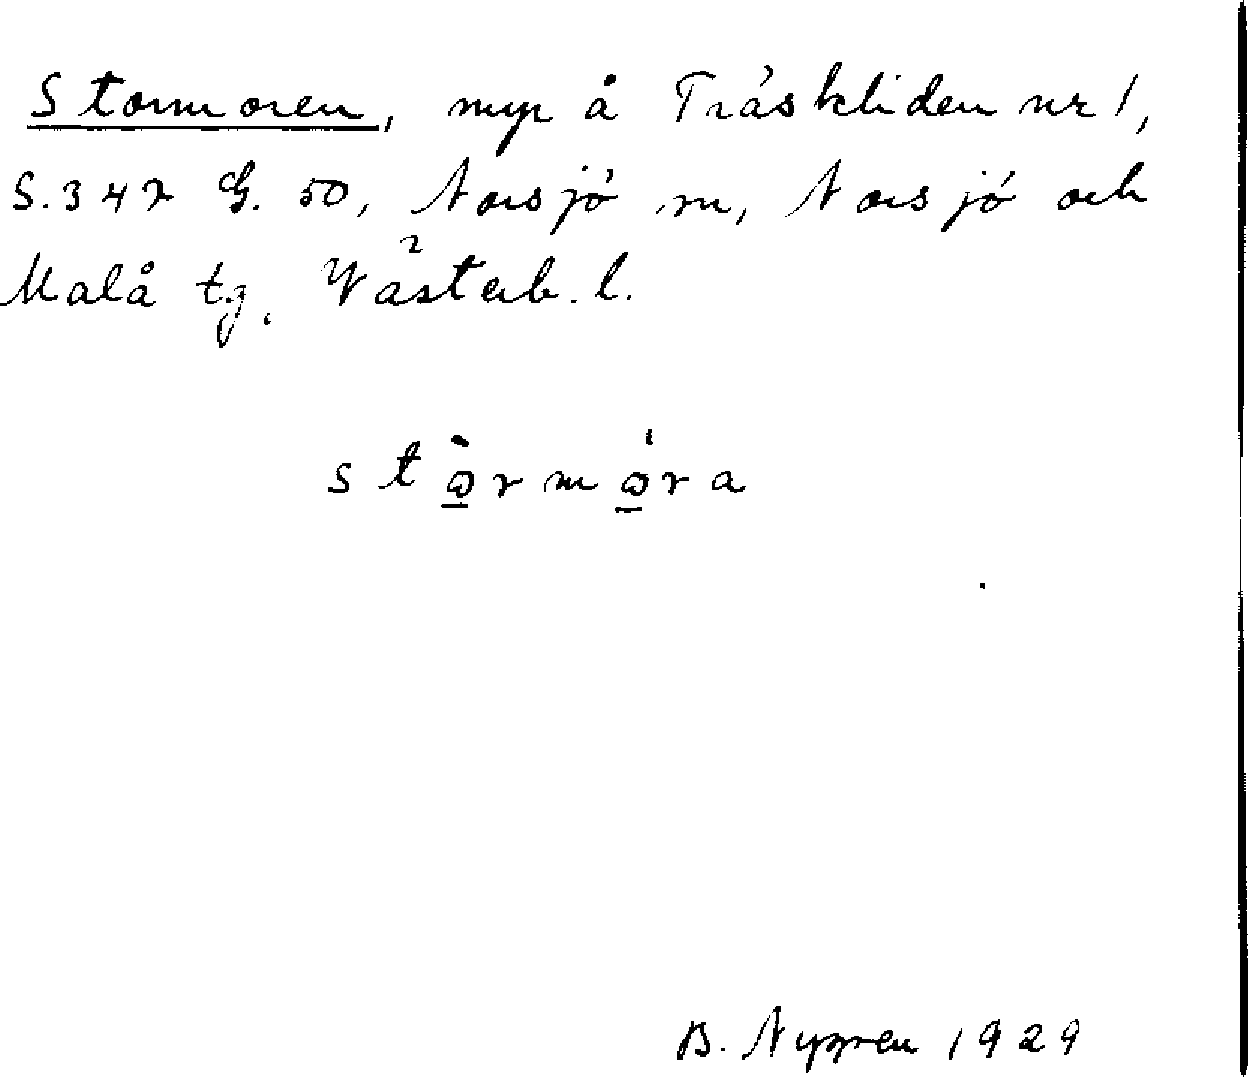 Stormoren, myr å Träskliden nr 1,
S. 347 G. 50, Norsjö sn, Norsjö och
Malå tg. Västerb. l.
stòrmóra
B. Nygren 1929